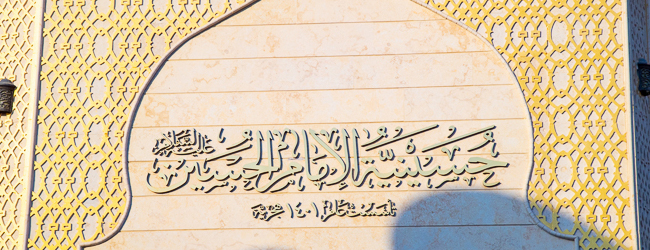 حسينية الإمام الحسين عليه السلام
تأسست عام ١٤٠١ هجرية